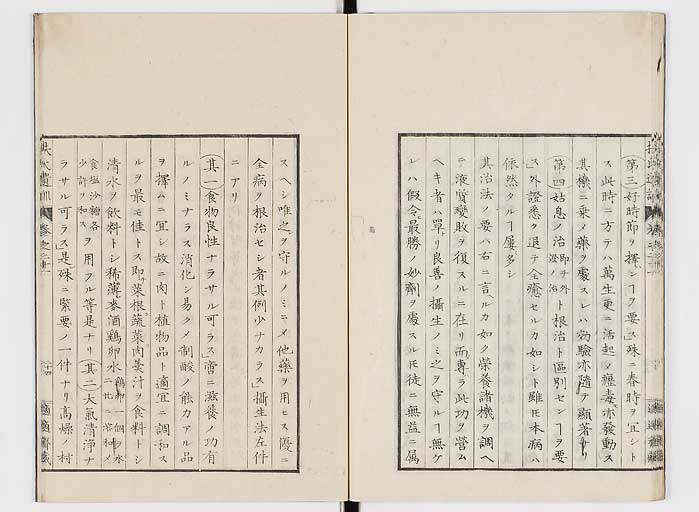 第三好時節ヲ擇ヿヲ要ス殊ニ春時ヲ宜シト
ス此時ニ方テハ萬生更ニ活起メ癧毒亦發動ス
其機ニ乗メ藥ヲ處スレハ効驗亦隨テ顯著ナリ
第四姑息ノ治即チ外證ノ治ト根治ト區別センヿヲ要
ス外證悉ク退テ全癒セルカ如シト雖モ本病ハ
依然タルヿ屢多シ
其治法ノ要ハ右ニ言ヘルカ如ク榮養諸機ヲ調ヘ
テ液質變敗ヲ復スルニ在リ而専ラ此功ヲ營ム
ヘキ者ハ單リ良善ノ攝生ノミ之ヲ守ルヿ無ケ
レハ假令最勝ノ妙劑ヲ處スルモ徒ニ無益ニ属
スヘシ唯之ヲ守ルノミニメ他藥ヲ用ヒス優ニ
全病ヲ根治セシ者其例少ナカラス攝生法左件
ニアリ
其一食物良性ナラサル可ラス啻ニ滋養ノ功有
ルノミナラス消化シ易ク メ制酸ノ能力アル品
ヲ擇ムニ宜シ故ニ肉ト植物品ト適宜ニ調和ス
ルヲ最モ佳トス即菜根蔬菜肉羮汁ヲ食料トシ
清水ヲ飲料トシ稀薄麥酒鷄卵水鷄卵一個沸水ニ溶和メ
食塩沙糖各少許ヲ和スヲ用フル等是ナリ其二大氣清浄ナ
ラサル可ラス是殊ニ緊要ノ一件ナリ高燥ノ村